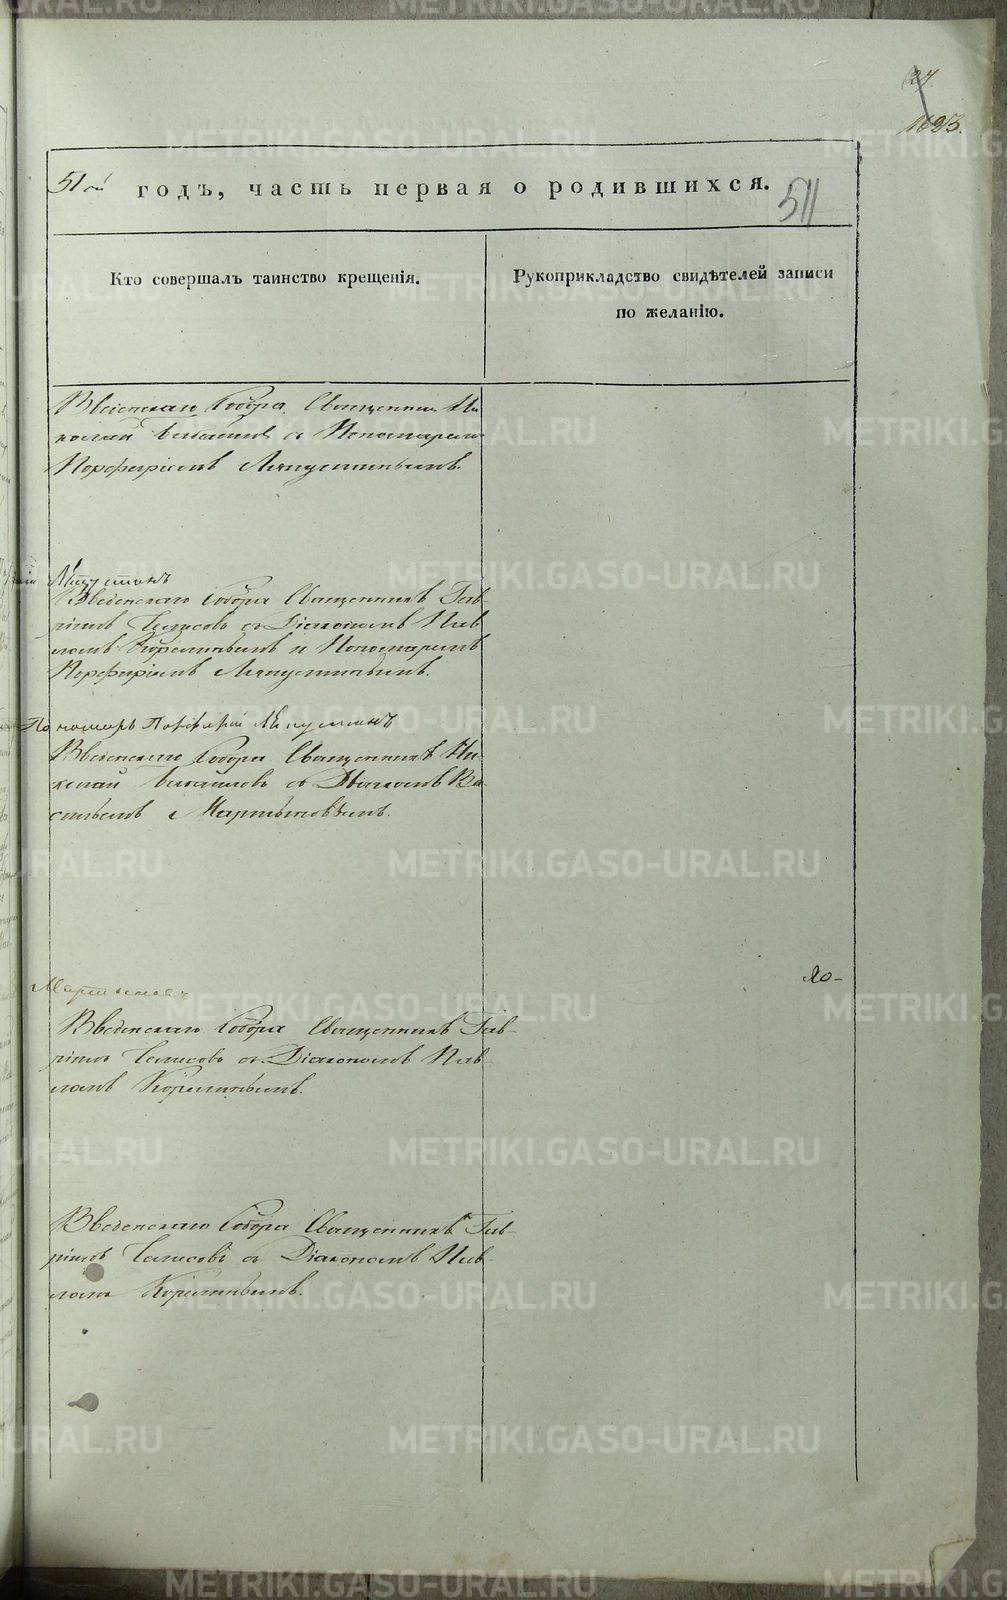 27
1023.
51ой годъ, часть первая о родившихся.
511
Кто совершалъ таинство крещенія.
Рукоприкладство свидѣтелей записи
по желанію.
Введенскаго Собора Священникъ Ни
колай с Пономаремъ
Порфиріемъ Ляпустинымъ.
Ляпустинъ
Введенскаго Собора Священникъ Гав
ріилъ съ Діакономъ Пав
ломъ и Пономаремъ
Порфиріемъ Ляпустинымъ.
Пономарь Порфирій Ляпустинъ
Введенскаго Собора Священникъ Ни-
колай съ Діакономъ Ва
сильемъ Мартыновымъ.
Мартыновъ
Ло-
Введенскаго Собора Священникъ Гав-
ріилъ съ Діакономъ Пав
ломъ
Введенскаго Собора Священникъ Гав-
ріилъ съ Діакономъ Пав-
ломъ
METRIKI.GASO-URAL.RU